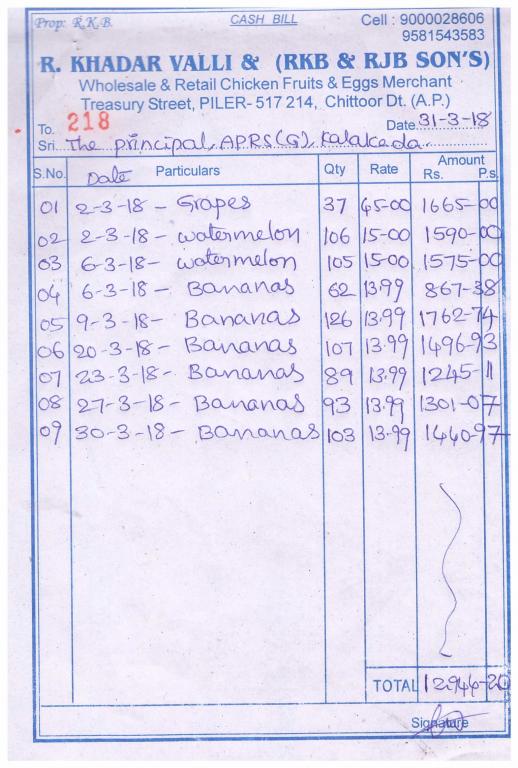 Prop: R.K.B. CASH BILL Cell : 9000028606
9581543583
R. KHADAR VALLI & (RKB & RJB SON'S)
Wholesale & Retail Chicken Fruits & Eggs Merchant
Treasury Street, PILER- 517 214, Chittoor Dt. (A.P.)
To. 218 Date 31-3-18
Sri. The principal, APRS(G), Kalakada
S.No. Date Particulars Qty Rate Amount Rs. P.s.
01 2-3-18 - Grapes 37 45-00 1665-00
02 2-3-18 - watermelon 106 15-00 1590-00
03 6-3-18 - watermelon 105 15-00 1575-00
04 6-3-18 - Bananas 62 13.99 867-38
05 9-3-18 - Bananas 126 13.99 1762-74
06 20-3-18 - Bananas 107 13.99 1496-93
07 23-3-18 - Bananas 89 13.99 1245-11
08 27-3-18 - Bananas 93 13.99 1301-07
09 30-3-18 - Bananas 103 13.99 1440-97
TOTAL 12944-20
Signature